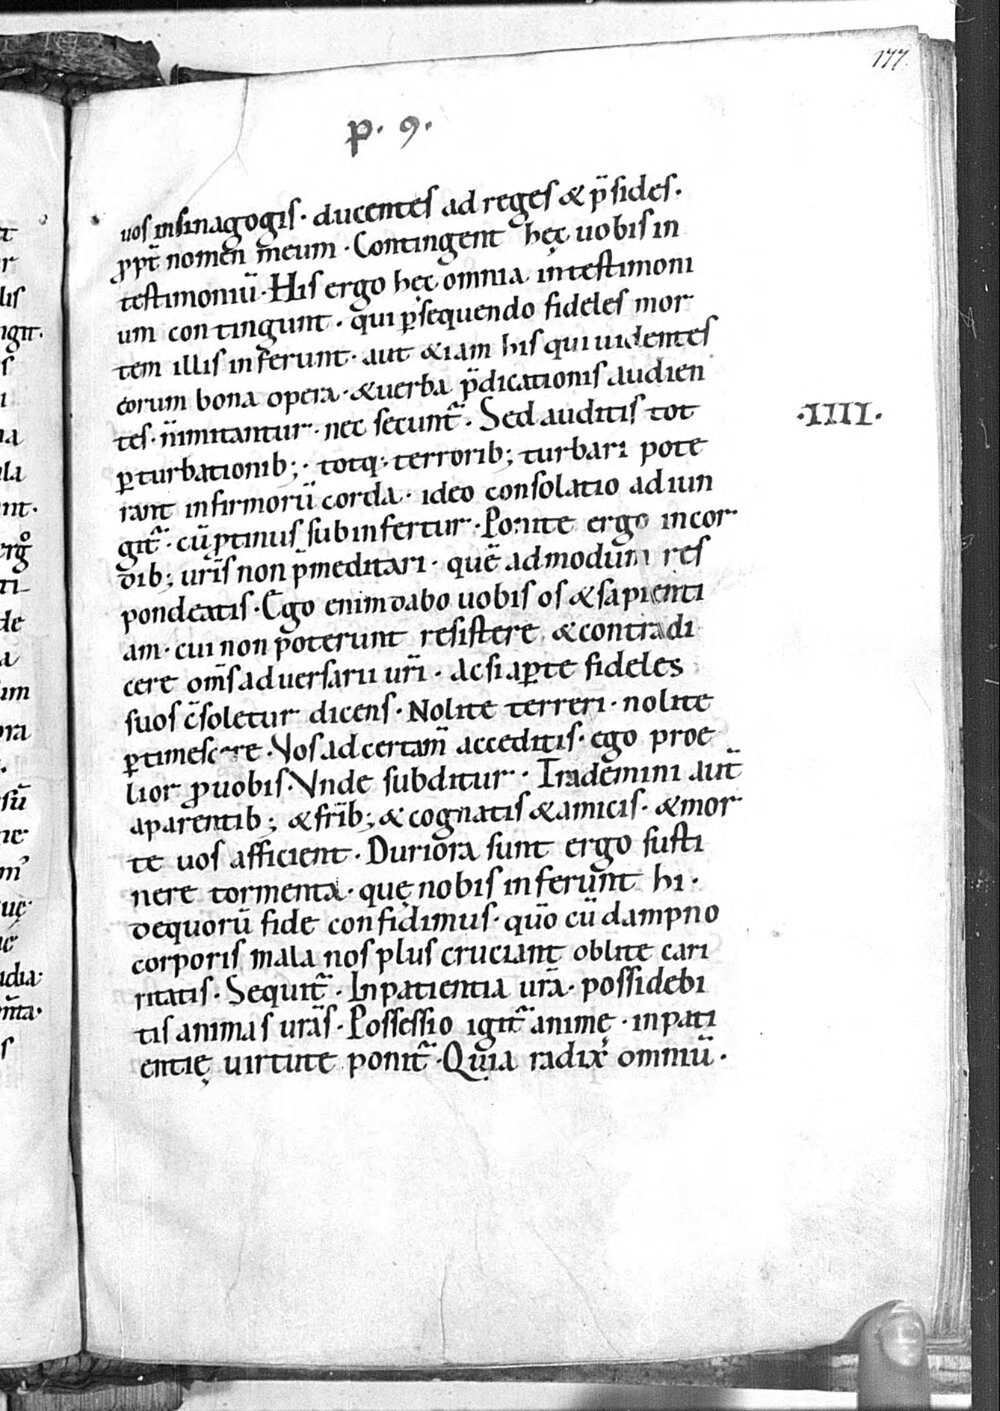 177.
p. 9.
uos insinagogis. ducentes ad reges & p̄sides.
ꝓpt̄ nomen meum. Contingent hęc uobis in
testimoniū. His ergo hęc omnia intestimoni
um contingunt. qui ꝑsequendo fideles mor
tem illis inferunt. aut &iam his qui uidentes
eorum bona opera. &uerba p̄dicationis audien
tes. n̄imitantur. nec secunt᷑. Sed auditis tot
ꝑturbationib;. totq; terrorib; turbari pote
rant infirmorū corda. ideo consolatio adiun
git᷑. cū ꝓtinus subinfertur. Ponite ergo incor
dib; ur̄is non p̄meditari. quē admodum res
pondeatis. Ego enim dabo uobis os &sapienti
am. cui non poterunt resistere &contradi
cere om̄s aduersarii ur̄i. Acsi aꝑte fideles
suos c̄soletur dicens. Nolite terreri. nolite
ꝑtimescere. Vos ad certam̄ acceditis. ego proe
lior ꝓuobis. Vnde subditur. Trademini aut̄
aparentib; &fr̄ib; &cognatis &amicis. &mor
te uos afficient. Duriora sunt ergo susti
nere tormenta. quę nobis inferunt hi.
dequorū fide confidimus. quo̅ cū dampno
corporis mala nos plus cruciant oblite cari
ritatis. Sequit᷑. Inpatientia ur̄a. possidebi
tis animas ur̄as. Possessio igit᷑ animę. inpati
entię uirtute ponit᷑. Quia radix omniū.
.IIII.